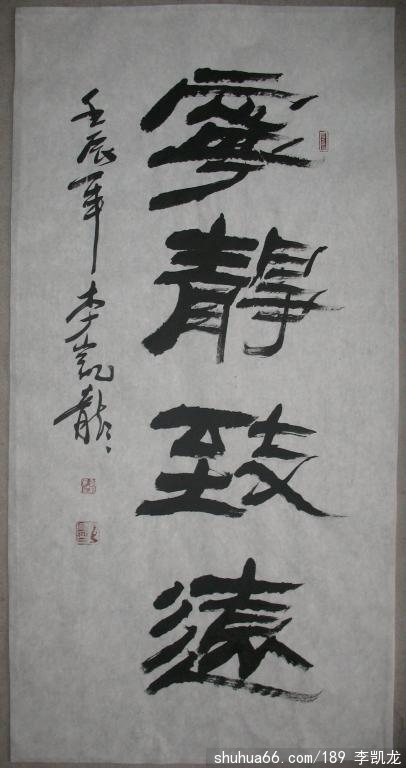 寧靜致遠
壬辰年李凯龍
shuhua66.com/189 李凯龙